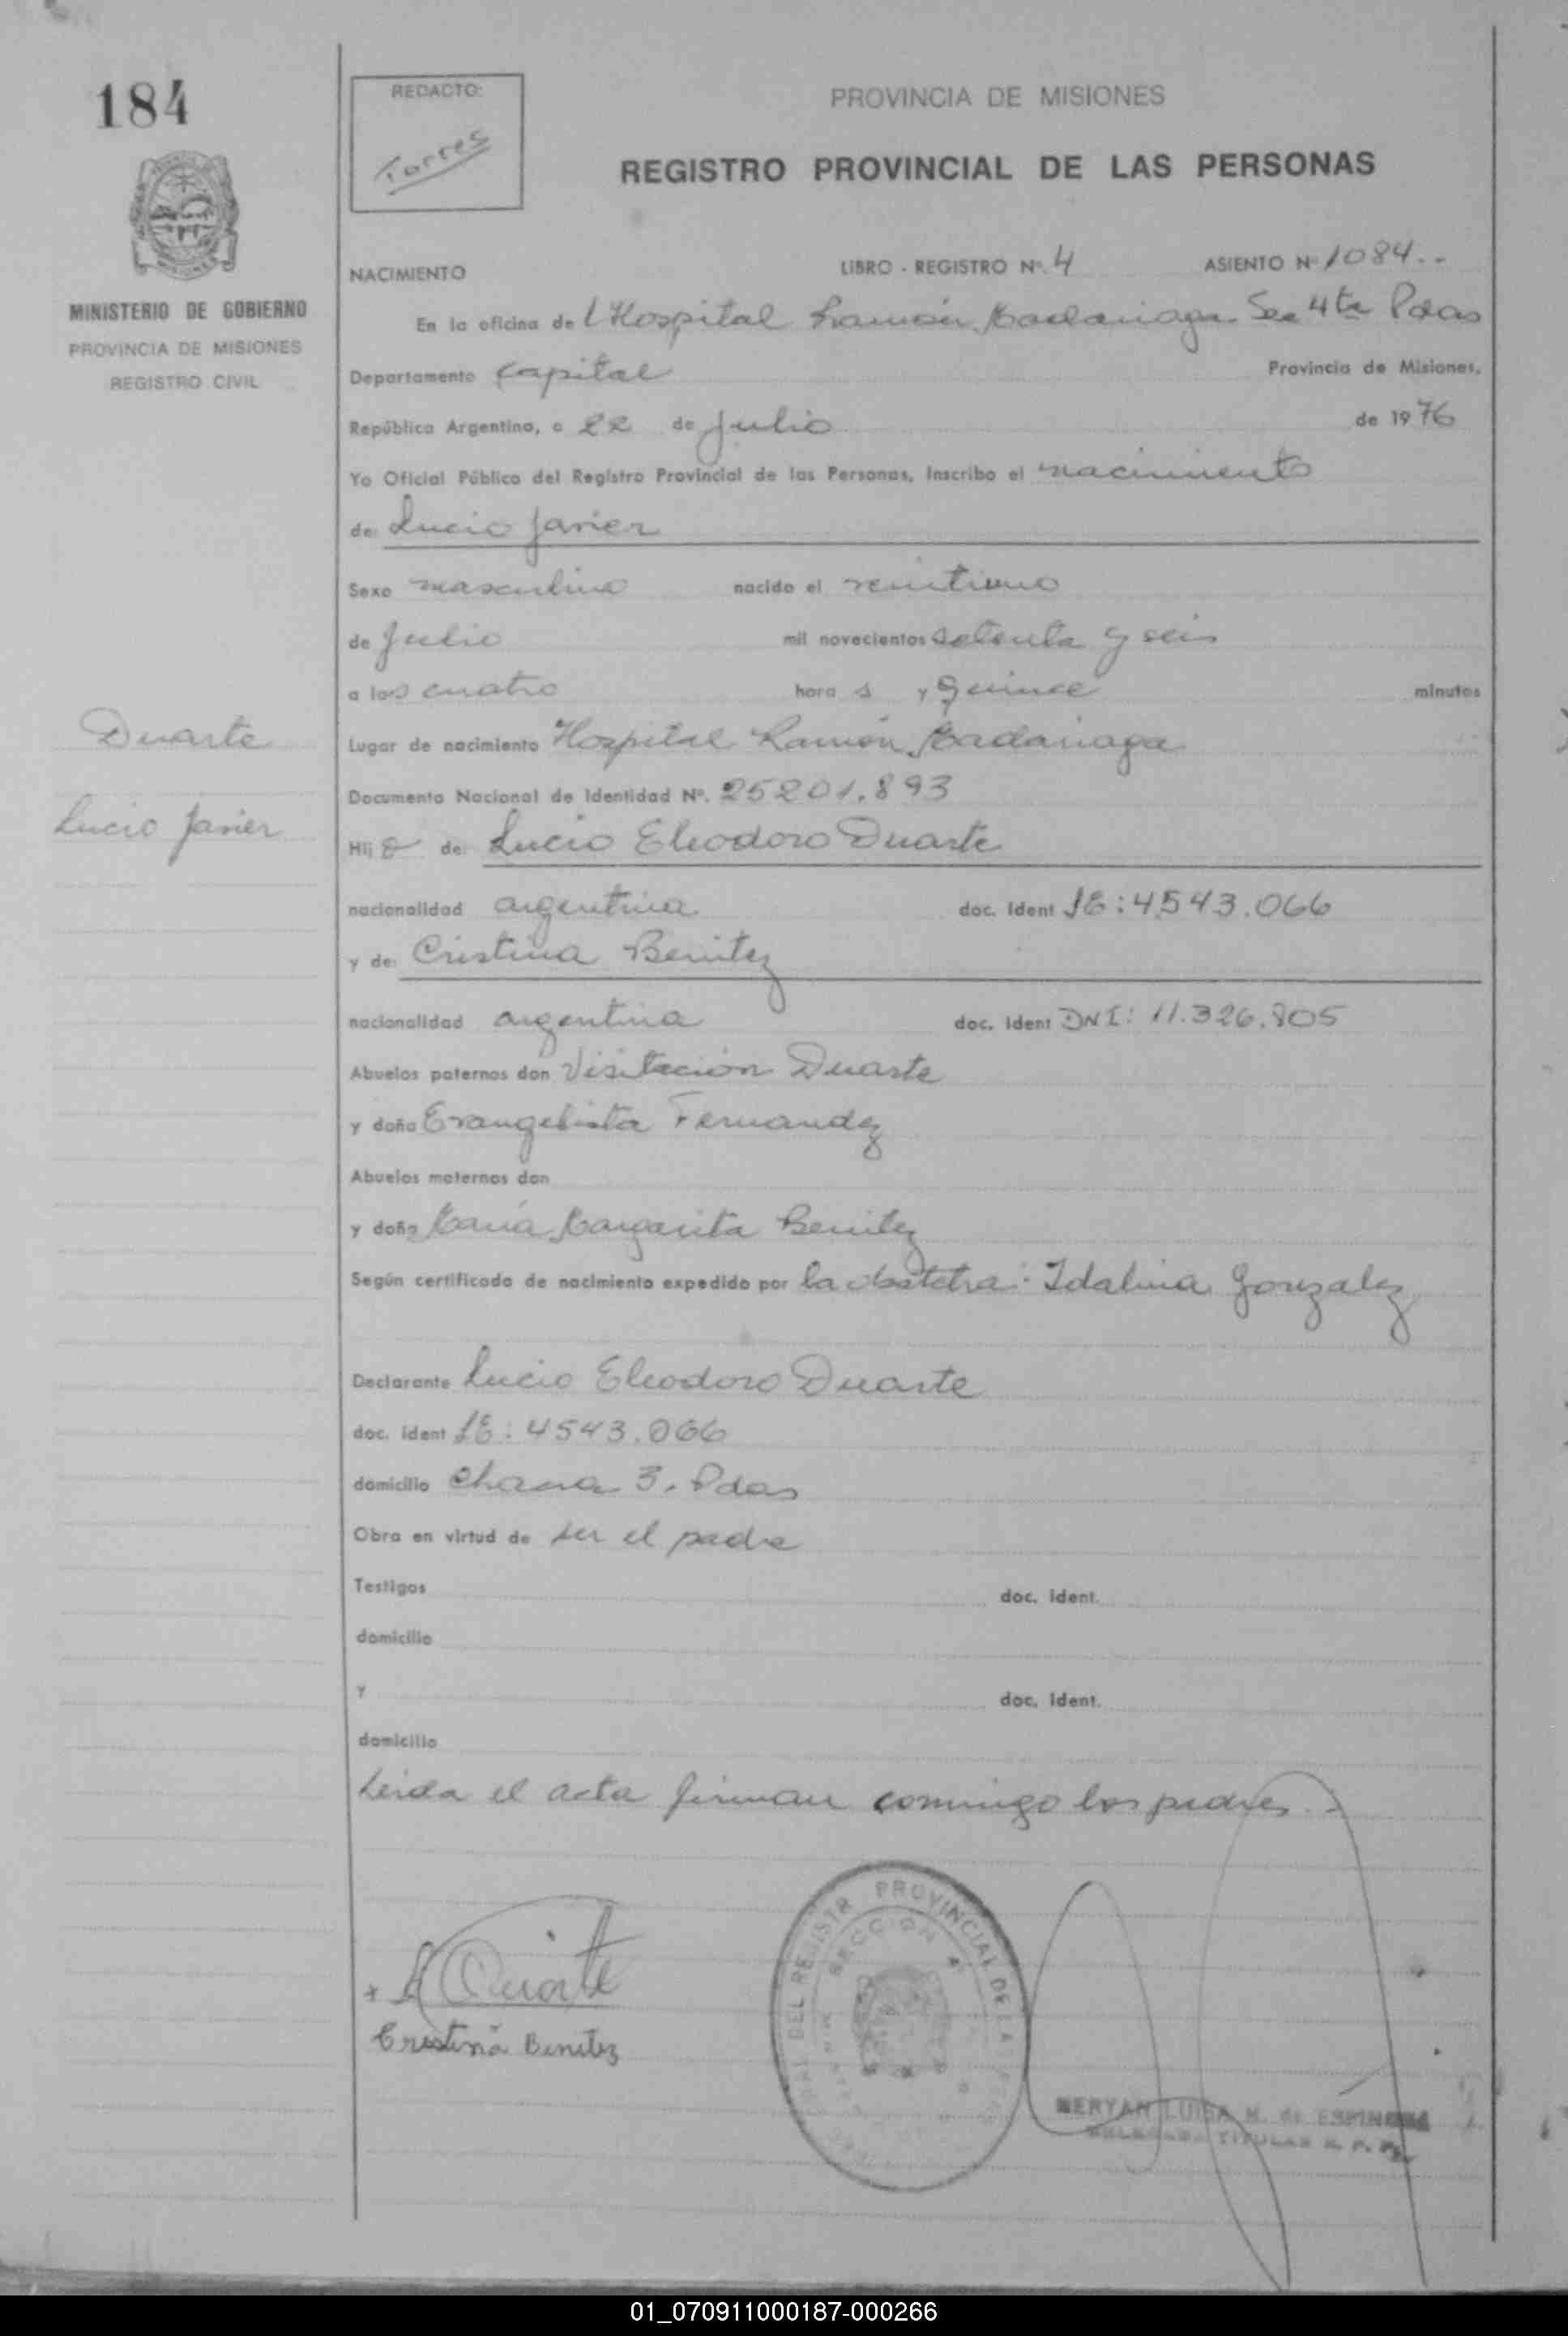 184
REDACTO:
Torres
PROVINCIA DE MISIONES
REGISTRO PROVINCIAL DE LAS PERSONAS
MINISTERIO DE GOBIERNO
PROVINCIA DE MISIONES
REGISTRO CIVIL
NACIMIENTO LIBRO - REGISTRO Nº. 4 ASIENTO Nº 1084..
En la oficina del Hospital Ramón Madariaga Sec 4ta Pdas
Departamento Capital Provincia de Misiones,
República Argentina, a 22 de Julio de 1976
Yo Oficial Público del Registro Provincial de las Personas, Inscribo el nacimiento
de: Lucio Javier
Sexo masculino nacido el veintiuno
de Julio mil novecientos setenta y seis
a las cuatro hora s y quince minutos
Duarte
Lucio Javier
Lugar de nacimiento Hospital Ramón Madariaga
Documento Nacional de Identidad Nº. 25201.893
Hij o de: Lucio Eleodoro Duarte
nacionalidad argentina doc. Ident LE: 4543.066
y de: Cristina Benitez
nacionalidad argentina doc. Ident DNI: 11.326.805
Abuelos paternos don Visitación Duarte
y doña Evangelista Fernandez
Abuelos maternos don
y doña María Margarita Benitez
Según certificado de nacimiento expedido por la obstetra: Idalina Gonzalez
Declarante Lucio Eleodoro Duarte
doc. ident LE: 4543.066
domicilio Chacra 3. Pdas
Obra en virtud de ser el padre
Testigos doc. ident.
domicilio
y doc. ident.
domicilio
Leida el acta firman conmigo los padres.-
x L Duarte
Cristina Benitez
REGISTR PROVINCIAL DE LA
SECCION 4
MERYAN LUISA M. de ESPINOSA
DELEGADA TITULAR R. P. P.
01_070911000187-000266